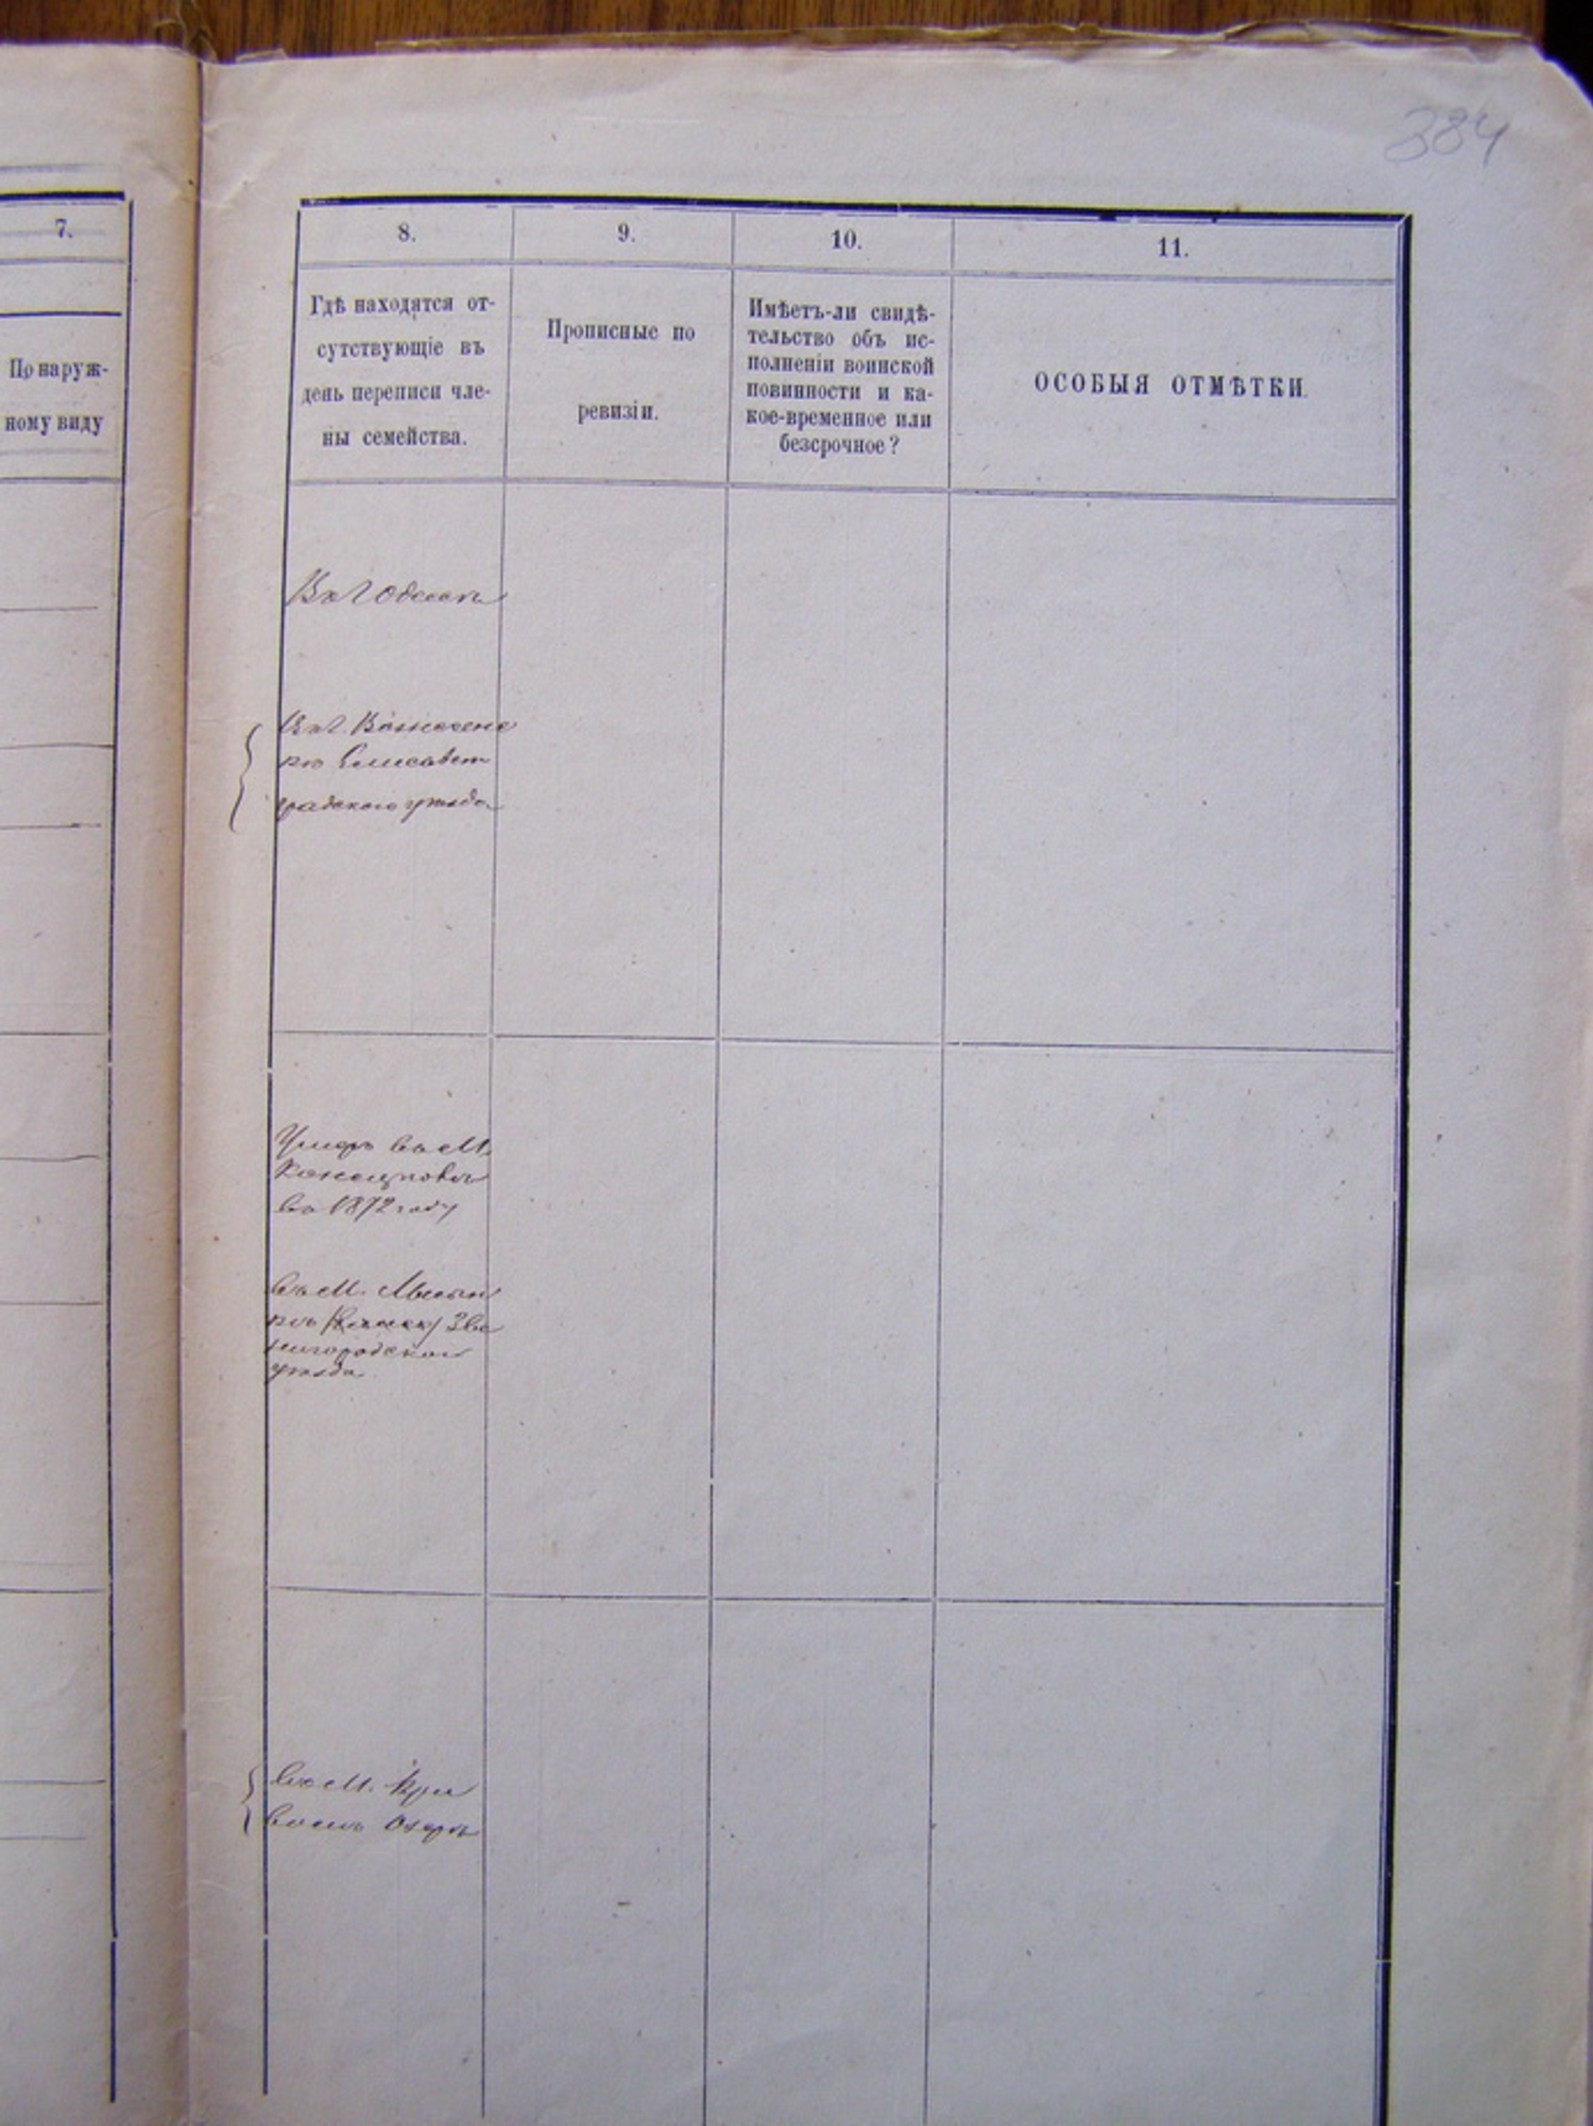 384
7.
По наруж-
ному виду
8.
9.
10.
11.
Гдѣ находятся от-
сутствующіе въ
день переписи чле-
ны семейства.
Прописные по
ревизіи.
Имѣетъ-ли свидѣ-
тельство объ ис-
полненіи воинской
повинности и ка-
кое-временное или
безсрочное?
ОСОБЫЯ ОТМѢТКИ.
Въ г Одессѣ
Въ г. Вознесенс
кѣ Елисавет
градскаго уѣзда
Умеръ въ м.
Конецполѣ
въ 1872 году
въ м.
Зве
нигородскаго
уѣзда
въ м. Кри
вомъ Озерѣ